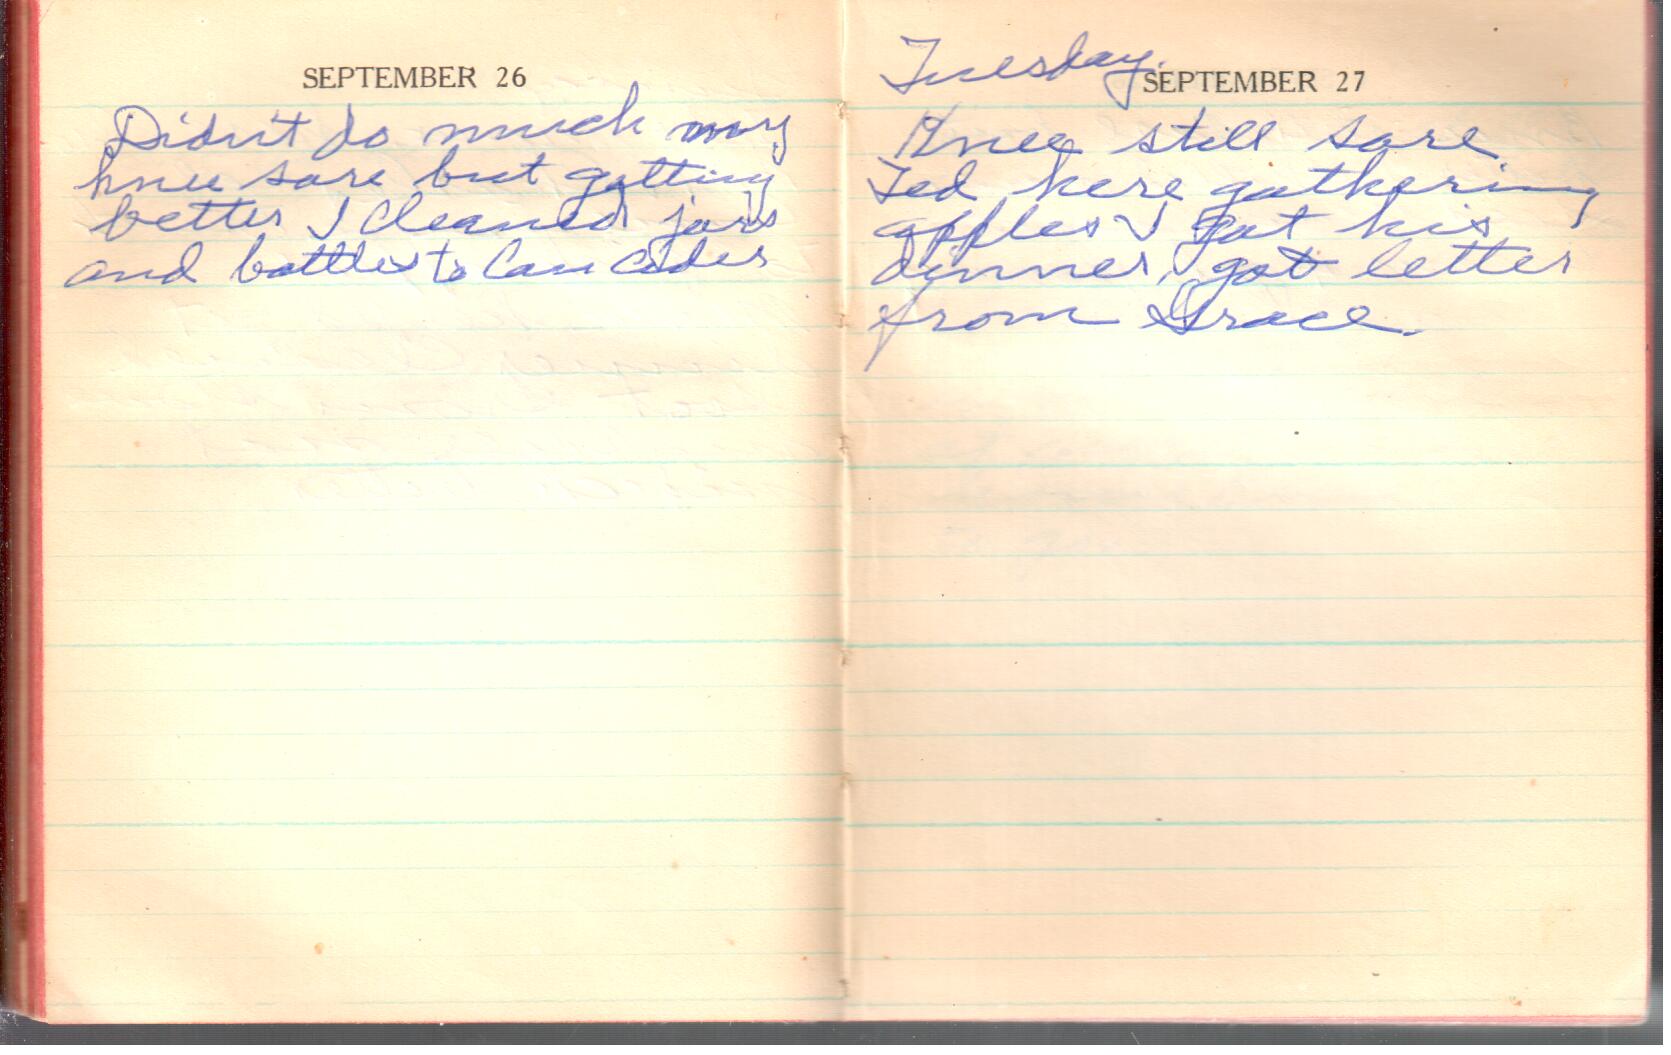 SEPTEMBER 26
Didn't do much my
knee sore but getting
better I cleaned jars
and bottles to Can cider
Tuesday.
SEPTEMBER 27
Knee still sore
Ted here gathering
apples I got his
dinner, got letter
from Grace.